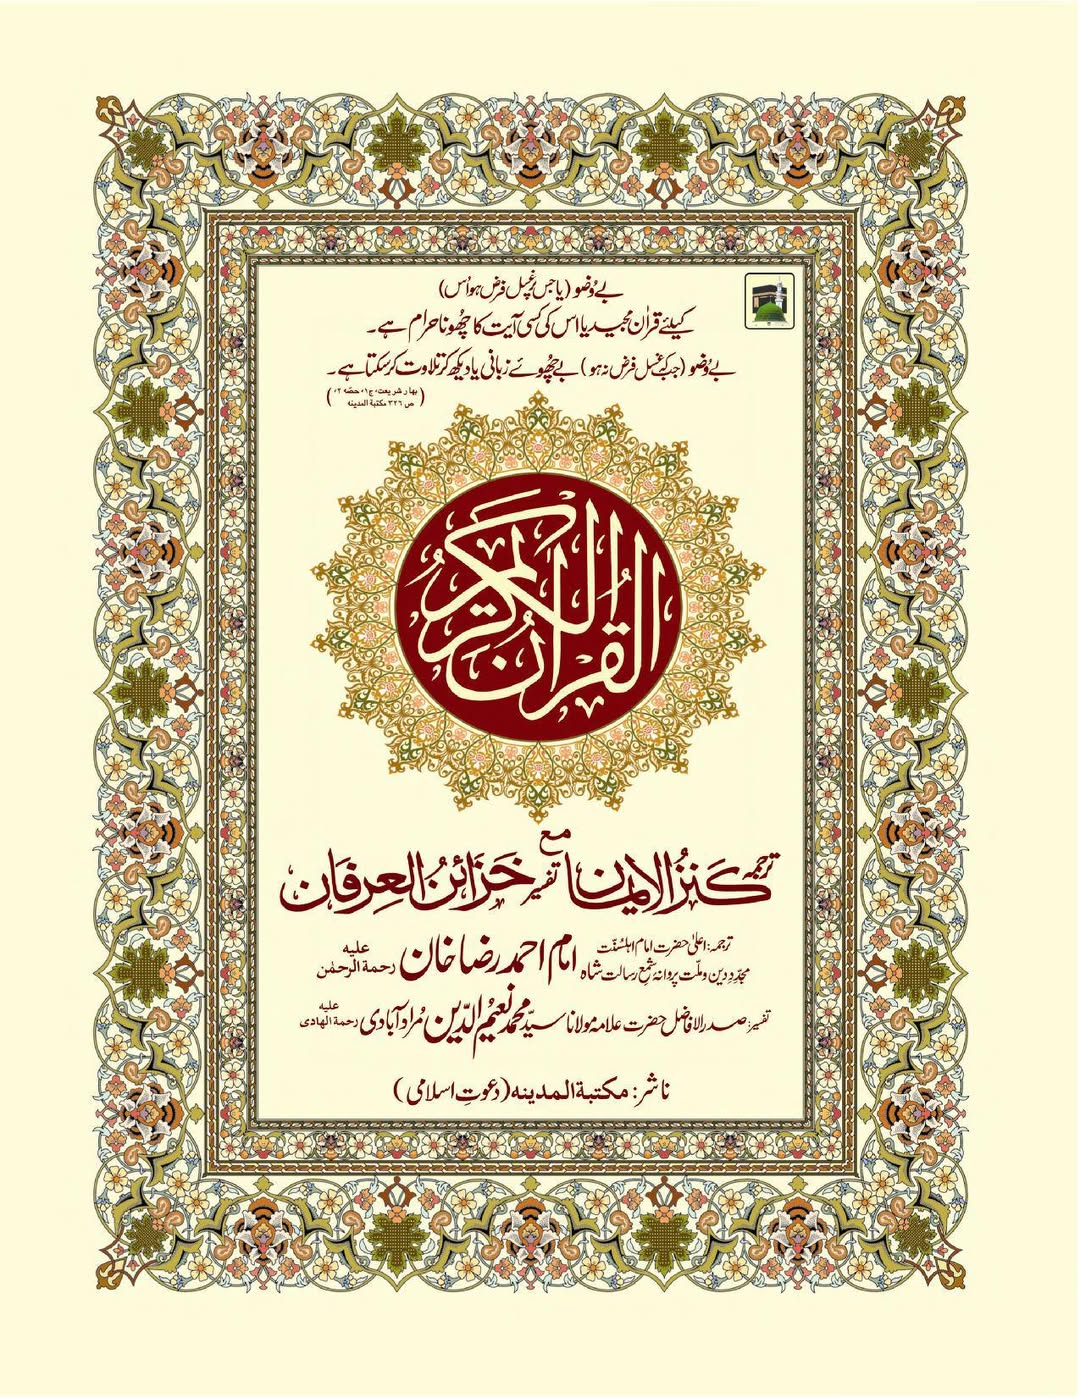 بے وُضو (یا جس پر غسل فرض ہو اُس)
کیلئے قراٰن مجید یا اس کی کسی آیت کا چُھونا حرام ہے۔
بے وُضو (جبکہ غسل فرض نہ ہو) بے چُھوئے زبانی یا دیکھ کر تلاوت کر سکتا ہے۔
(بہار شریعت، ج۱، حصّہ ۲،
ص ۳۲۶ مکتبة المدینه)
القرآن الكريم
مع
ترجمہ کَنزُ الایمان تفسیر خَزَائنُ العِرفَان
ترجمہ: اعلیٰ حضرت امام اہلسُنّت
مجدّدِ دین و ملّت پروانۂ شمعِ رسالت شاہ امام احمد رضا خان علیه رحمة الرحمٰن
تفسیر: صدر الافاضل حضرت علامہ مولانا سیّد محمد نعیمُ الدّین مُراد آبادی علیه رحمة الهادی
ناشر: مکتبة المدینه (دعوتِ اسلامی)